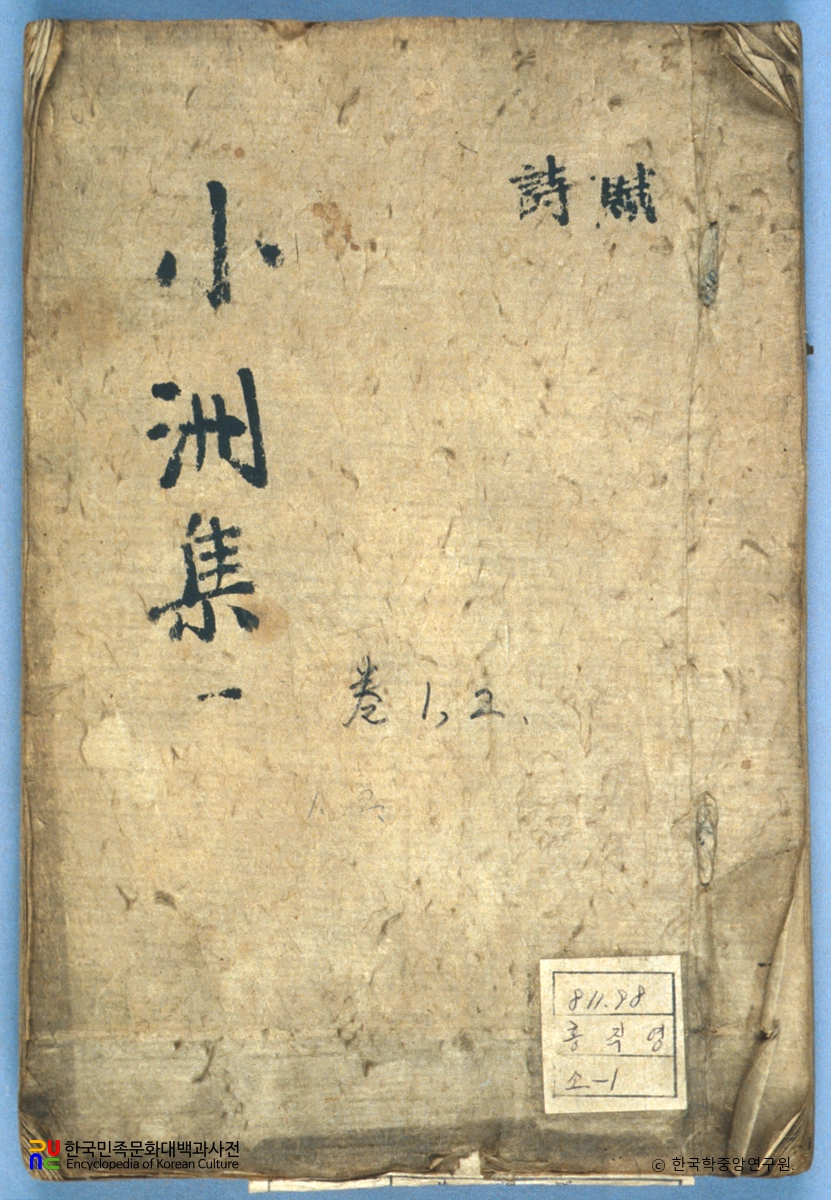 賦
詩
小洲集 一
卷 1, 2.
811.98
홍직영
소-1
한국민족문화대백과사전
Encyclopedia of Korean Culture
© 한국학중앙연구원